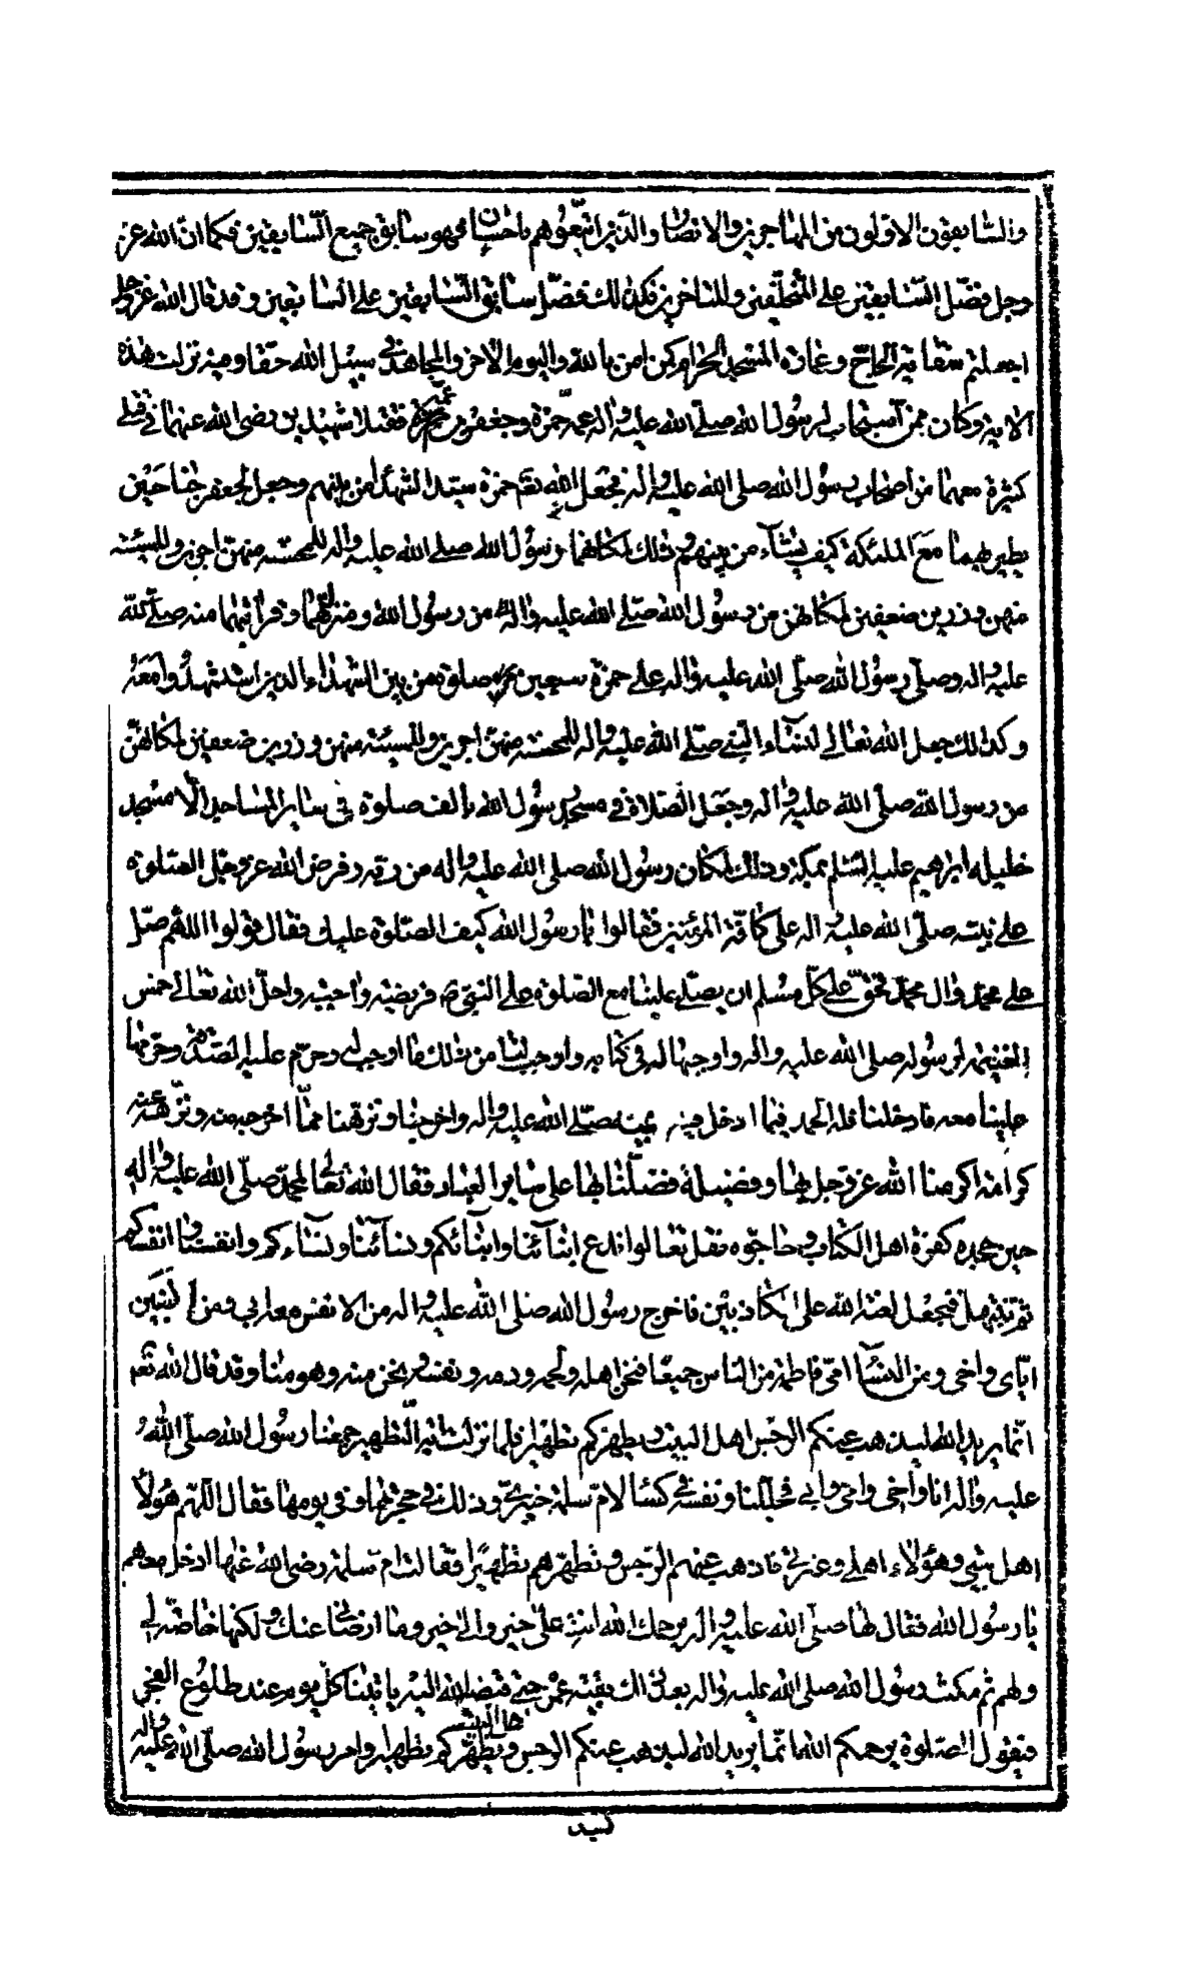 والسّابقون الاوّلون من المهاجرين والانصار والّذين اتّبعوهم باحسان فهو سابق جميع السّابقين فكما انّ الله عز
وجل فضّل السّابقين على المتخلّفين والمتاخرين فكذلك فضّل سابق السّابقين على السّابقين وقد قال الله عز وجل
اجعلتم سقاية الحاجّ وعمارة المسجد الحرام كمن امن بالله واليوم الاخر والمجاهد في سبيل الله حقّا وفيه نزلت هذه
الاية وكان ممن استجاب لرسول الله صلّى الله عليه واله عمّه حمزة وجعفر بن عمّه فقتلا شهيدين رضى الله عنهما في قتلى
كثيرة معهما من اصحاب رسول الله صلى الله عليه واله فجعل الله تعم حمزة سيّد الشهداء من بينهم وجعل لجعفر جناحين
يطير بهما مع الملئكة كيف يشآء من بينهم وذلك لمكانهما من رسول الله صلى الله عليه واله للمحسنة منهنّ اجرين وللمسيئة
منهن وزرين ضعفين لمكانهن من رسول الله صلّى الله عليه واله من رسول الله ومنزلتهما وقرابتهما منه صلّى الله
عليه واله وصلّى رسول الله صلّى الله عليه واله على حمزة سبعين صلوة من بين الشهداء الذين استشهدوا معه
وكذلك جعل الله تعالى لنساء النبى صلّى الله عليه واله للمحسنة منهنّ اجرين وللمسيئة منهن وزرين ضعفين لمكانهنّ
من رسول الله صلى الله عليه واله وجعل الصلاة في مسجد رسول الله بالف صلوة في ساير المساجد الّا مسجد
خليله ابراهيم عليه السّلم بمكة وذلك لمكان رسول الله صلى الله عليه واله من ربّه وفرض الله عز وجل الصلوة
على نبيّه صلّى الله عليه واله على كافّة المؤمنين فقالوا يا رسول الله كيف الصّلوة عليك فقال قولوا اللّهم صلّ
على محمّد وال محمّد فحقّ على كلّ مسلم ان يصلّى علينا مع الصّلوة على النبىّ ص فريضة واجبة واحلّ الله تعالى خمس
الغنيمة لرسوله صلى الله عليه واله واوجبها له في كتابه واوجب لنا من ذلك ما اوجب له وحرّم عليه الصّدقة وحرّمها
علينا معه فادخلنا فله الحمد فيما ادخل فيه نبيّه صلّى الله عليه واله واخرجنا ونزّهنا ممّا اخرجه منه ونزّهه عنه
كرامة اكرمنا الله عز وجل بها وفضيلة فضّلنا بها على ساير العباد فقال الله تعالى لمحمّد صلّى الله عليه واله
حين جحده كفرة اهل الكتاب وحاجّوه فقل تعالوا ندع ابنآئنا وابنآئكم ونسآئنا ونسآءكم وانفسنا وانفسكم
ثمّ نبتهل فنجعل لعنة الله على الكاذبين فاخرج رسول الله صلى الله عليه واله من الانفس معه ابي ومن البنين
ايّاى واخى ومن النسآء امّى فاطمة من الناس جميعا فنحن اهله ولحمه ودمه ونفسه ونحن منه وهو منّا وقد قال الله تعم
انّما يريد الله ليذهب عنكم الرّجس اهل البيت ويطهركم تطهيرا فلما نزلت اية التّطهير جمعنا رسول الله صلّى الله
عليه واله انا واخى وامى وابى فجلّلنا ونفسه في كساء لامّ سلمة خيبرىّ وذلك في حجرتها وفى يومها فقال اللّهم هؤلاء
اهل بيتى وهؤلاء اهلى وعترتى فاذهب عنهم الرّجس وتطهّرهم تطهيرًا فقالت ام سلمة رضى الله عنها ادخل معهم
يا رسول الله فقال لها صلى الله عليه واله يرحمك الله انت على خير والى خير وما ارضانى عنك ولكنها خاصّة لى
ولهم ثم مكث رسول الله صلى الله عليه واله بعد ذلك بقيّة عمره حتى قبضه الله اليه ياتينا كلّ يوم عند طلوع الفجر
فيقول الصّلوة يرحمكم الله انّما يريد الله ليذهب عنكم الرجس اهل البيت ويطهّركم تطهيرا وامر رسول الله صلّى الله عليه واله
بسد